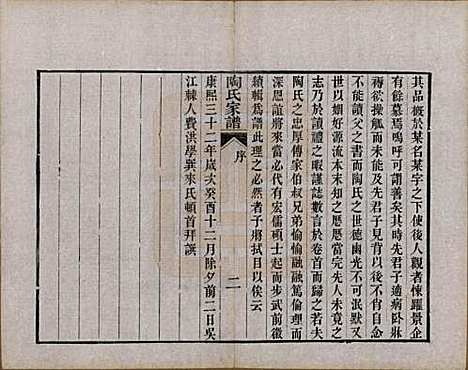 其品概於某名某字之下使後人觀者悚躍景企
有餘慕焉嗚呼可謂善矣其時先君子適病臥牀
褥欲操觚而未能及先君子見背以後余悲痛
不能讀父之書而陶氏之世德幽光不可泯默又
世以婣好源流本末知之悉歷歷當完先人未竟之
志乃於讀禮之暇謹誌數言於卷首而歸之若夫
陶氏之忠厚傳家伯叔兄弟愉愉融融篤倫理而
深恩誼將來當必代有宏儒碩士起而步武前徽
續輯爲譜此理之必然者予將拭目以俟云
康熙三十二年歲次癸酉十二月除夕前二日吳
江棘人費洪學巽來氏頓首拜譔
陶氏家譜
序
二